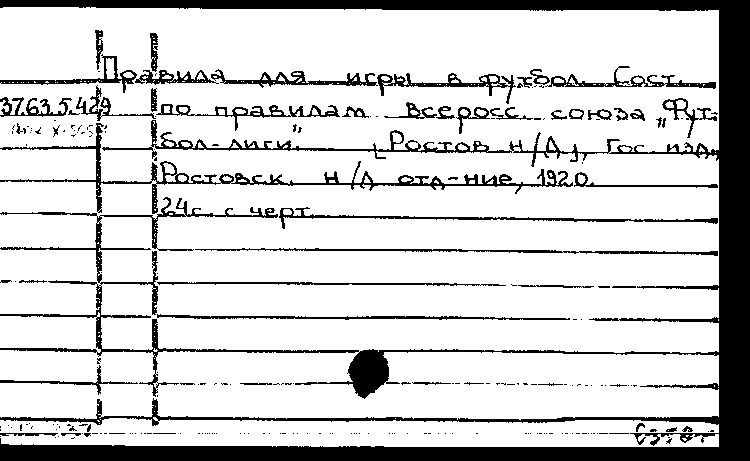 Правила для игры в футбол. Сост.
37.63.5.429 по правилам Всеросс. союза „Фут-
бол-лиги". [Ростов н/Д], Гос. изд.,
Ростовск. н/Д отд-ние, 1920.
24с. с черт.